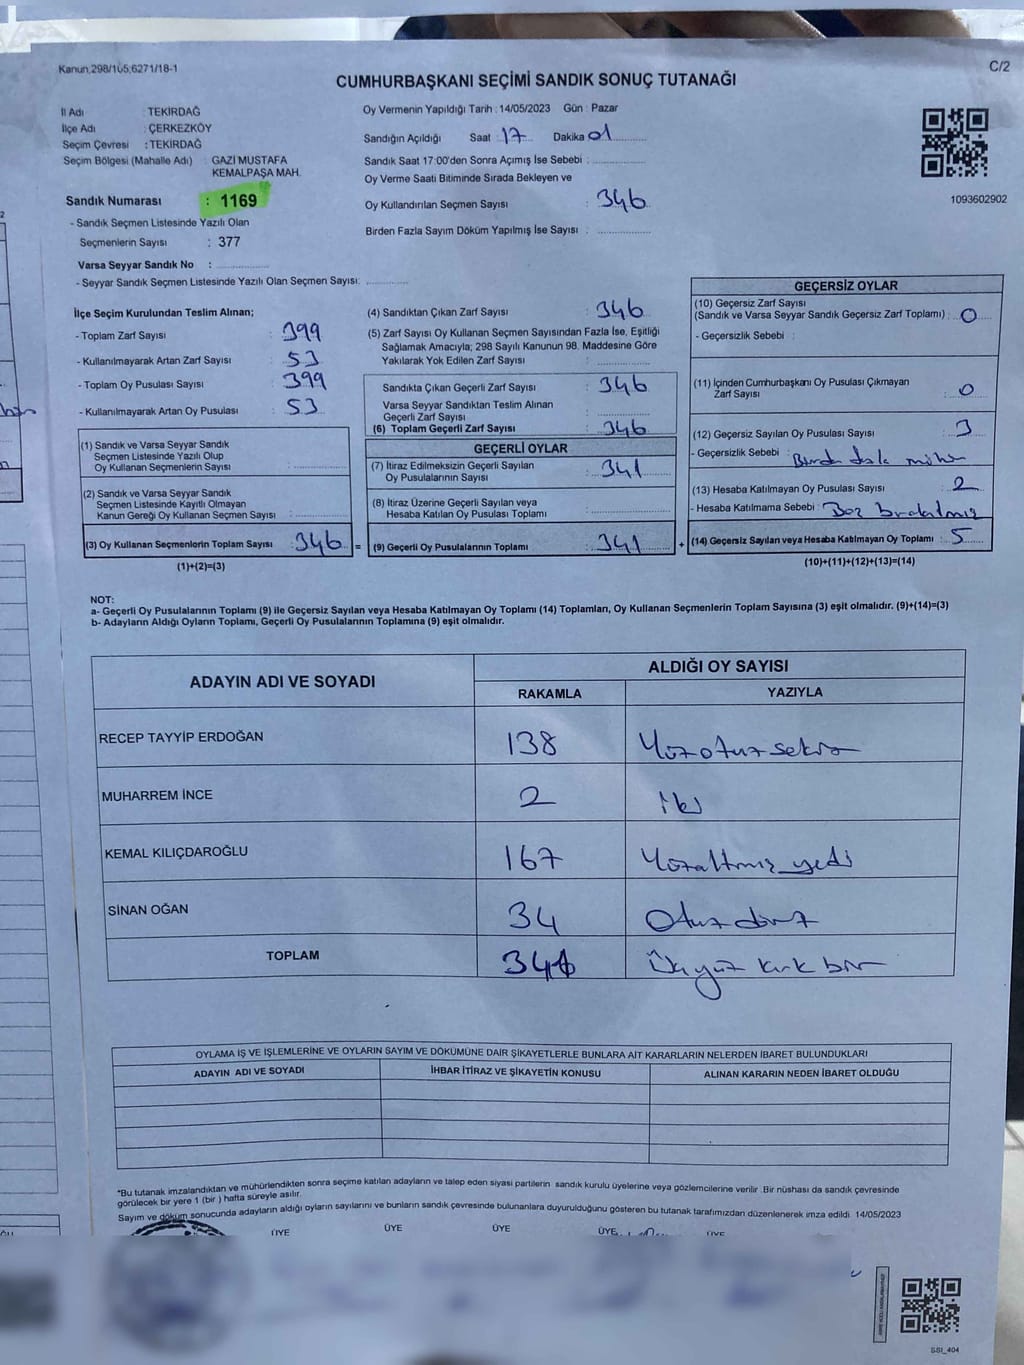 Kanun,298/105,6271/18-1
C/2
CUMHURBAŞKANI SEÇİMİ SANDIK SONUÇ TUTANAĞI
İl Adı : TEKİRDAĞ
İlçe Adı : ÇERKEZKÖY
Seçim Çevresi : TEKİRDAĞ
Seçim Bölgesi (Mahalle Adı) : GAZİ MUSTAFA
KEMALPAŞA MAH.
Sandık Numarası : 1169
- Sandık Seçmen Listesinde Yazılı Olan
Seçmenlerin Sayısı : 377
Varsa Seyyar Sandık No :
- Seyyar Sandık Seçmen Listesinde Yazılı Olan Seçmen Sayısı:
Oy Vermenin Yapıldığı Tarih : 14/05/2023 Gün : Pazar
Sandığın Açıldığı Saat 17 Dakika 01
Sandık Saat 17:00'den Sonra Açımış İse Sebebi :
Oy Verme Saati Bitiminde Sırada Bekleyen ve
Oy Kullandırılan Seçmen Sayısı : 346
Birden Fazla Sayım Döküm Yapılmış İse Sayısı :
1093602902
İlçe Seçim Kurulundan Teslim Alınan;
- Toplam Zarf Sayısı : 399
- Kullanılmayarak Artan Zarf Sayısı : 53
- Toplam Oy Pusulası Sayısı : 399
- Kullanılmayarak Artan Oy Pusulası : 53
(1) Sandık ve Varsa Seyyar Sandık
Seçmen Listesinde Yazılı Olup
Oy Kullanan Seçmenlerin Sayısı :
(2) Sandık ve Varsa Seyyar Sandık
Seçmen Listesinde Kayıtlı Olmayan
Kanun Gereği Oy Kullanan Seçmen Sayısı :
(3) Oy Kullanan Seçmenlerin Toplam Sayısı : 346 =
(1)+(2)=(3)
(4) Sandıktan Çıkan Zarf Sayısı : 346
(5) Zarf Sayısı Oy Kullanan Seçmen Sayısından Fazla İse, Eşitliği
Sağlamak Amacıyla; 298 Sayılı Kanunun 98. Maddesine Göre
Yakılarak Yok Edilen Zarf Sayısı :
Sandıkta Çıkan Geçerli Zarf Sayısı : 346
Varsa Seyyar Sandıktan Teslim Alınan
Geçerli Zarf Sayısı :
(6) Toplam Geçerli Zarf Sayısı : 346
GEÇERLİ OYLAR
(7) İtiraz Edilmeksizin Geçerli Sayılan
Oy Pusulalarının Sayısı : 341
(8) İtiraz Üzerine Geçerli Sayılan veya
Hesaba Katılan Oy Pusulası Toplamı :
(9) Geçerli Oy Pusulalarının Toplamı : 341 +
GEÇERSİZ OYLAR
(10) Geçersiz Zarf Sayısı
(Sandık ve Varsa Seyyar Sandık Geçersiz Zarf Toplamı) : 0
- Geçersizlik Sebebi :
(11) İçinden Cumhurbaşkanı Oy Pusulası Çıkmayan
Zarf Sayısı : 0
(12) Geçersiz Sayılan Oy Pusulası Sayısı : 3
- Geçersizlik Sebebi :
(13) Hesaba Katılmayan Oy Pusulası Sayısı : 2
- Hesaba Katılmama Sebebi : Boş bırakılmış
(14) Geçersiz Sayılan veya Hesaba Katılmayan Oy Toplamı : 5
(10)+(11)+(12)+(13)=(14)
NOT:
a- Geçerli Oy Pusulalarının Toplamı (9) ile Geçersiz Sayılan veya Hesaba Katılmayan Oy Toplamı (14) Toplamları, Oy Kullanan Seçmenlerin Toplam Sayısına (3) eşit olmalıdır. (9)+(14)=(3)
b- Adayların Aldığı Oyların Toplamı, Geçerli Oy Pusulalarının Toplamına (9) eşit olmalıdır.
ADAYIN ADI VE SOYADI
ALDIĞI OY SAYISI
RAKAMLA YAZIYLA
RECEP TAYYİP ERDOĞAN 138 Yüzotuzsekiz
MUHARREM İNCE 2 iki
KEMAL KILIÇDAROĞLU 167 Yüzaltmışyedi
SİNAN OĞAN 34 Otuzdört
TOPLAM 341 Üçyüz kırk bir
OYLAMA İŞ VE İŞLEMLERİNE VE OYLARIN SAYIM VE DÖKÜMÜNE DAİR ŞİKAYETLERLE BUNLARA AİT KARARLARIN NELERDEN İBARET BULUNDUKLARI
ADAYIN ADI VE SOYADI İHBAR İTİRAZ VE ŞİKAYETİN KONUSU ALINAN KARARIN NEDEN İBARET OLDUĞU
*Bu tutanak imzalandıktan ve mühürlendikten sonra seçime katılan adayların ve talep eden siyasi partilerin sandık kurulu üyelerine veya gözlemcilerine verilir. Bir nüshası da sandık çevresinde
görülecek bir yere 1 (bir) hafta süreyle asılır.
Sayım ve döküm sonucunda adayların aldığı oyların sayılarını ve bunların sandık çevresinde bulunanlara duyurulduğunu gösteren bu tutanak tarafımızdan düzenlenerek imza edildi. 14/05/2023
ÜYE ÜYE ÜYE ÜYE ÜYE
SSI_404